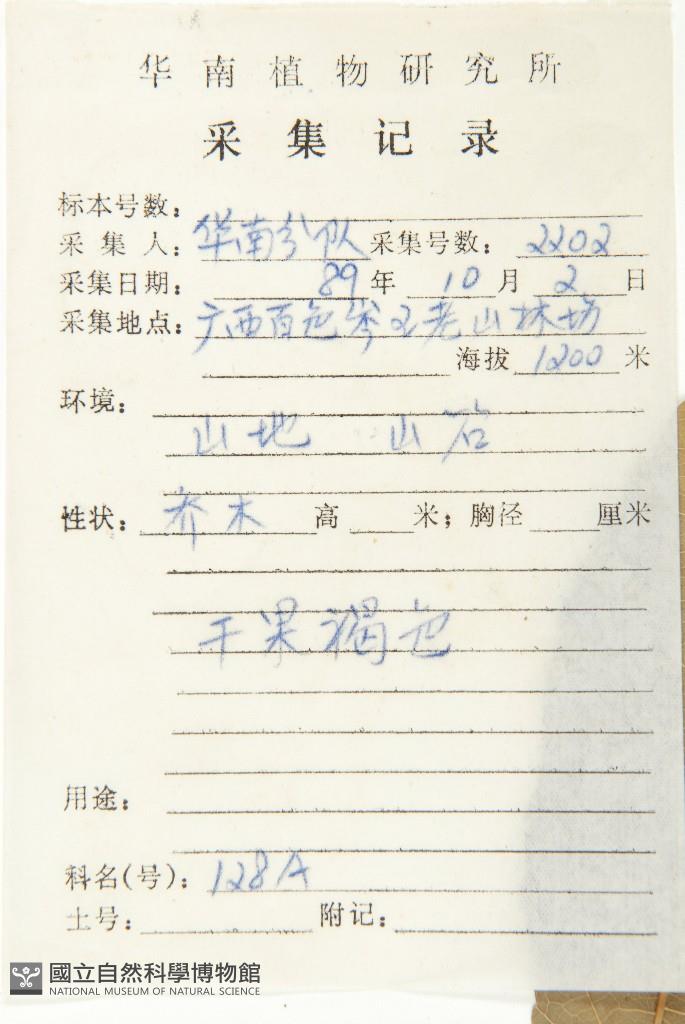 华南植物研究所
采集记录
标本号数：
采集人：华南分队 采集号数：2202
采集日期：89年10月2日
采集地点：广西百色岑王老山林场
海拔1200米
环境：
山地 山
性状：乔木 高 米；胸径 厘米
干果褐色
用途：
科名(号)：128A
土号： 附记：
國立自然科學博物館
NATIONAL MUSEUM OF NATURAL SCIENCE